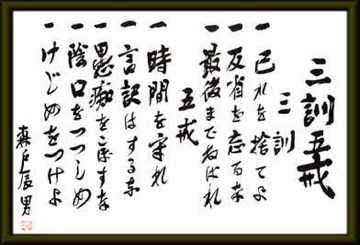 三訓五戒
三訓
一 己れを捨てよ
一 反省を忘るな
一 最後までねばれ
五戒
一 時間を守れ
一 言訳はするな
一 愚痴をこぼすな
一 陰口をつつしめ
一 けじめをつけよ
森戸辰男